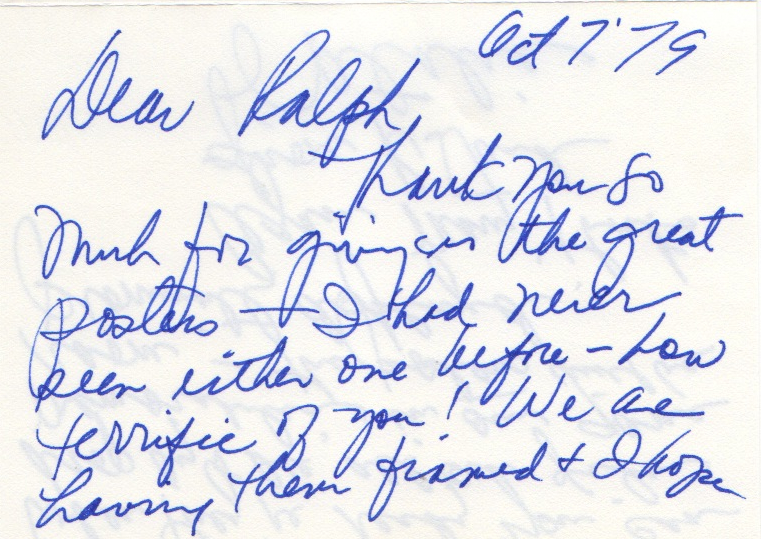 Oct 7 '79
Dear Ralph,
Thank you so
much for giving us the great
posters — I had never
seen either one before – how
terrific of you! We are
having them framed & I hope